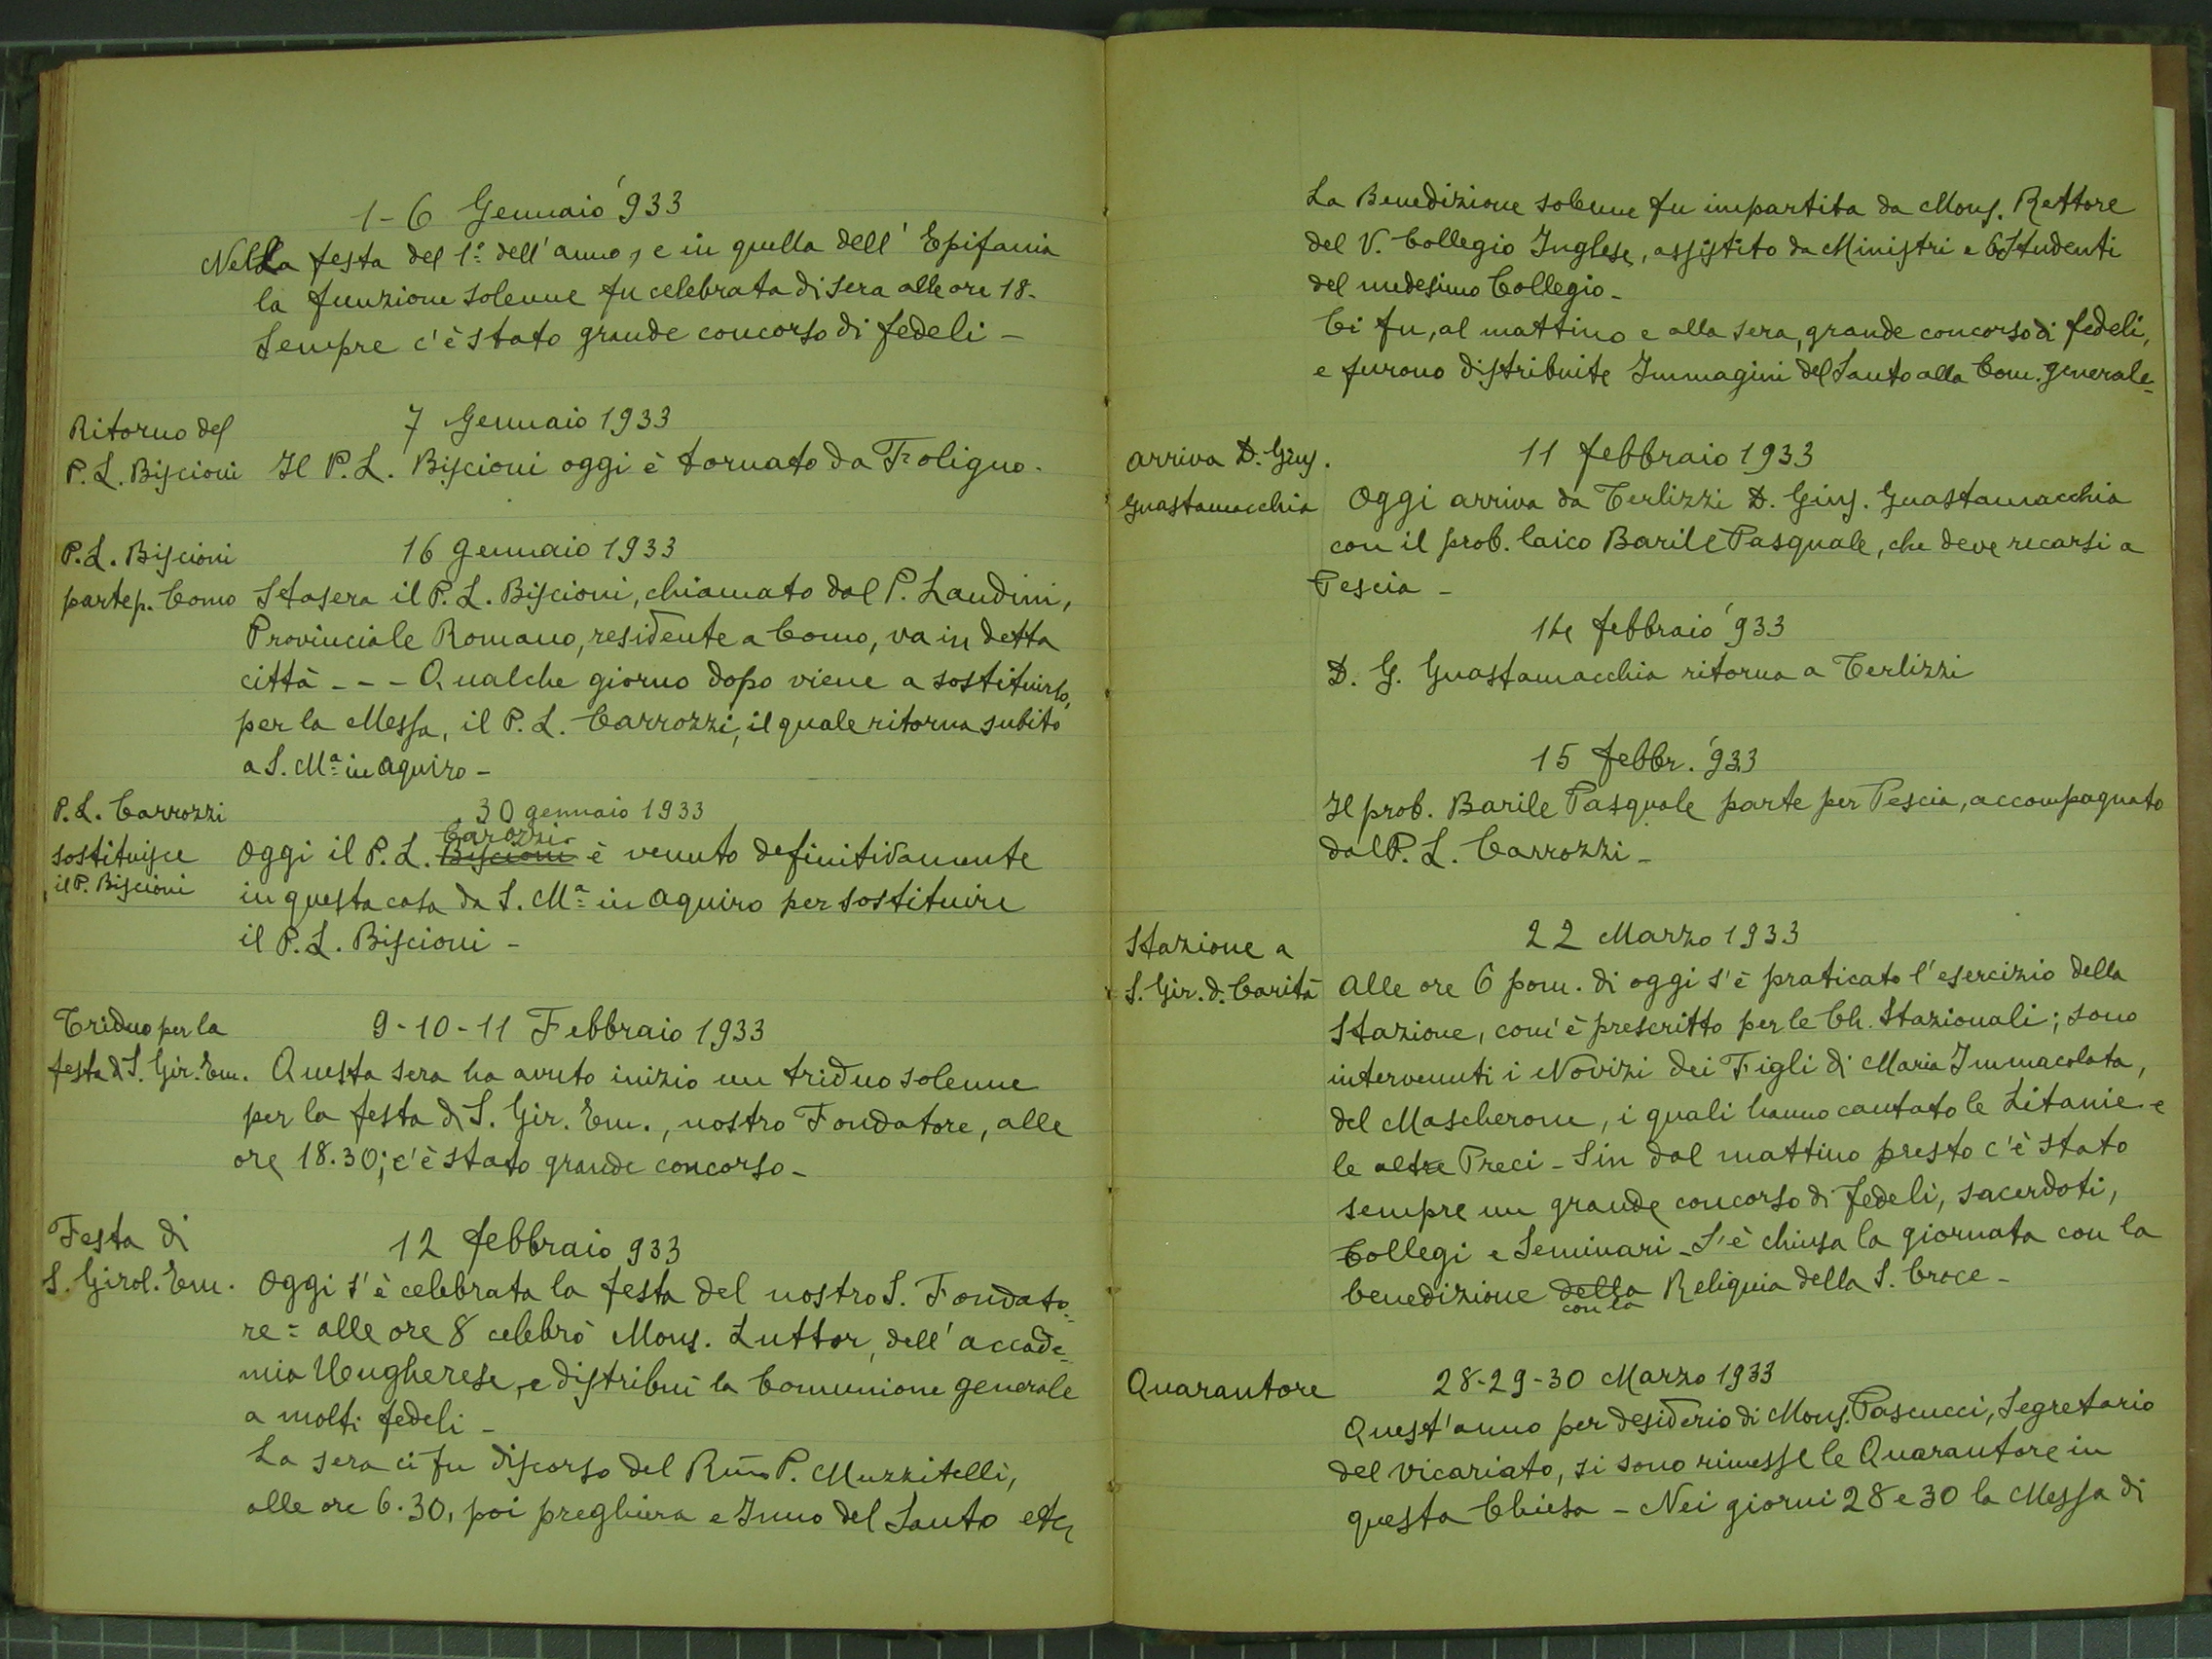 1-6 Gennaio '933
Nella festa del 1º dell'anno, e in quella dell'Epifania
la funzione solenne fu celebrata di sera alle ore 18.
Sempre c'è stato grande concorso di fedeli -
Ritorno del
P. L. Biscioni
7 Gennaio 1933
Il P. L. Biscioni oggi è tornato da Foligno.
P. L. Biscioni
parte p. Como
16 gennaio 1933
Stasera il P. L. Biscioni, chiamato dal P. Landini,
Provinciale Romano, residente a Como, va in detta
città - - - Qualche giorno dopo viene a sostituirlo,
per la Messa, il P. L. Carrozzi, il quale ritorna subito
a S. Mª in Aquiro -
P. L. Carrozzi
sostituisce
il P. Biscioni
30 gennaio 1933
Carozzi
Oggi il P. L. Biscioni è venuto definitivamente
in questa casa da S. Mª in Aquiro per sostituire
il P. L. Biscioni -
Triduo per la
festa di S. Gir. Em.
9-10-11 Febbraio 1933
Questa sera ha avuto inizio un triduo solenne
per la festa di S. Gir. Em., nostro Fondatore, alle
ore 18.30; c'è stato grande concorso -
Festa di
S. Girol. Em.
12 febbraio 933
Oggi s'è celebrata la festa del nostro S. Fondato-
re = alle ore 8 celebrò Mons. Luttor, dell'accade-
mia Ungherese, e distribuì la Comunione generale
a molti fedeli -
La sera ci fu discorso del Rmo P. Muzzitelli,
alle ore 6.30, poi preghiera e Inno del Santo etc
La Benedizione solenne fu impartita da Mons. Rettore
del V. Collegio Inglese, assistito da Ministri e 6 Studenti
del medesimo Collegio -
Ci fu, al mattino e alla sera, grande concorso di fedeli,
e furono distribuite Immagini del Santo alla Com. generale -
Arriva D. Gius.
Guastamacchia
11 febbraio 1933
Oggi arriva da Terlizzi D. Gius. Guastamacchia
con il prob. laico Barile Pasquale, che deve recarsi a
Pescia -
14 febbraio '933
D. G. Guastamacchia ritorna a Terlizzi
15 febbr. '933
Il prob. Barile Pasquale parte per Pescia, accompagnato
dal P. L. Carrozzi -
Stazione a
S. Gir. d. Carità
22 Marzo 1933
Alle ore 6 pom. di oggi s'è praticato l'esercizio della
Stazione, com'è prescritto per le Ch. Stazionali; sono
intervenuti i Novizi dei Figli di Maria Immacolata,
del Mascherone, i quali hanno cantato le Litanie e
le altre Preci - Sin dal mattino presto c'è stato
sempre un grande concorso di fedeli, sacerdoti,
Collegi e Seminari - S'è chiusa la giornata con la
benedizione della Reliquia della S. Croce -
con la
Quarantore
28-29-30 Marzo 1933
Quest'anno per desiderio di Mons. Pascucci, Segretario
del Vicariato, si sono rimesse le Quarantore in
questa Chiesa - Nei giorni 28 e 30 la Messa di